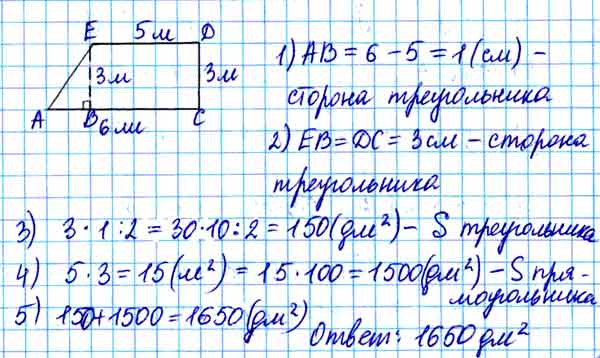 E 5м D
3м 3м
A B C
6м
1) AB = 6 − 5 = 1 (см) −
сторона треугольника
2) EB = DC = 3 см − сторона
треугольника
3) 3 · 1 : 2 = 30 · 10 : 2 = 150 (дм²) − S треугольника
4) 5 · 3 = 15 (м²) = 15 · 100 = 1500 (дм²) − S пря-
моугольника
5) 150 + 1500 = 1650 (дм²)
Ответ: 1650 дм²